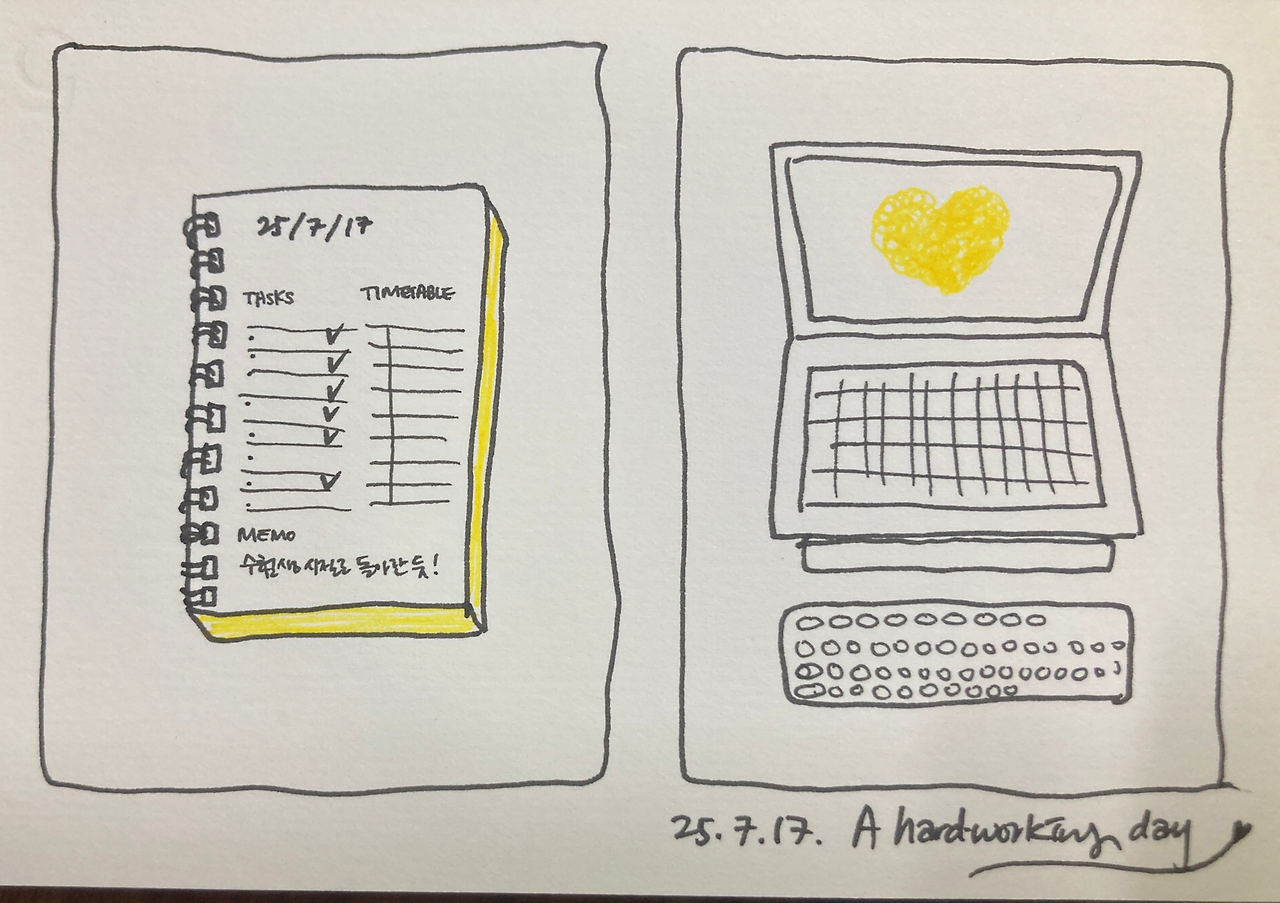 25/7/17
TASKS
TIMETABLE
MEMO
수험생 시절로 돌아간 듯!
25.7.17. A hardworking day